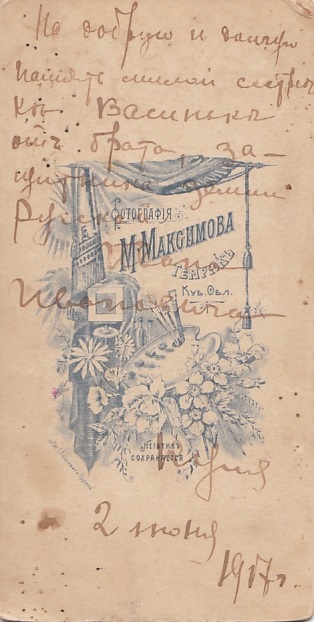 На добрую и долгую
память милой сестрич
къ Васинькъ
отъ брата, за-
щитника земли
Русской
ФОТОГРАФІЯ
М. МАКСИМОВА
ТЕМРЮКЪ
Куб. Обл.
Ивана
Ивановича
НЕГАТИВЪ
СОХРАНЯЕТСЯ
2 июня
1917 г.